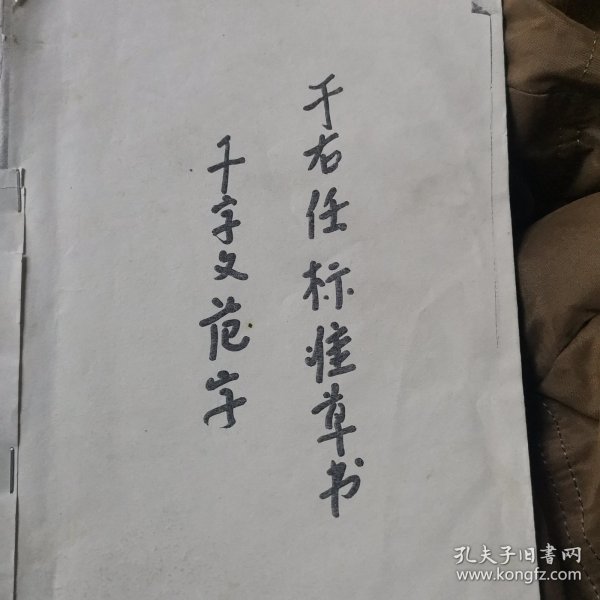 于右任标准草书
千字文范字
孔夫子旧書网
www.kongfz.com